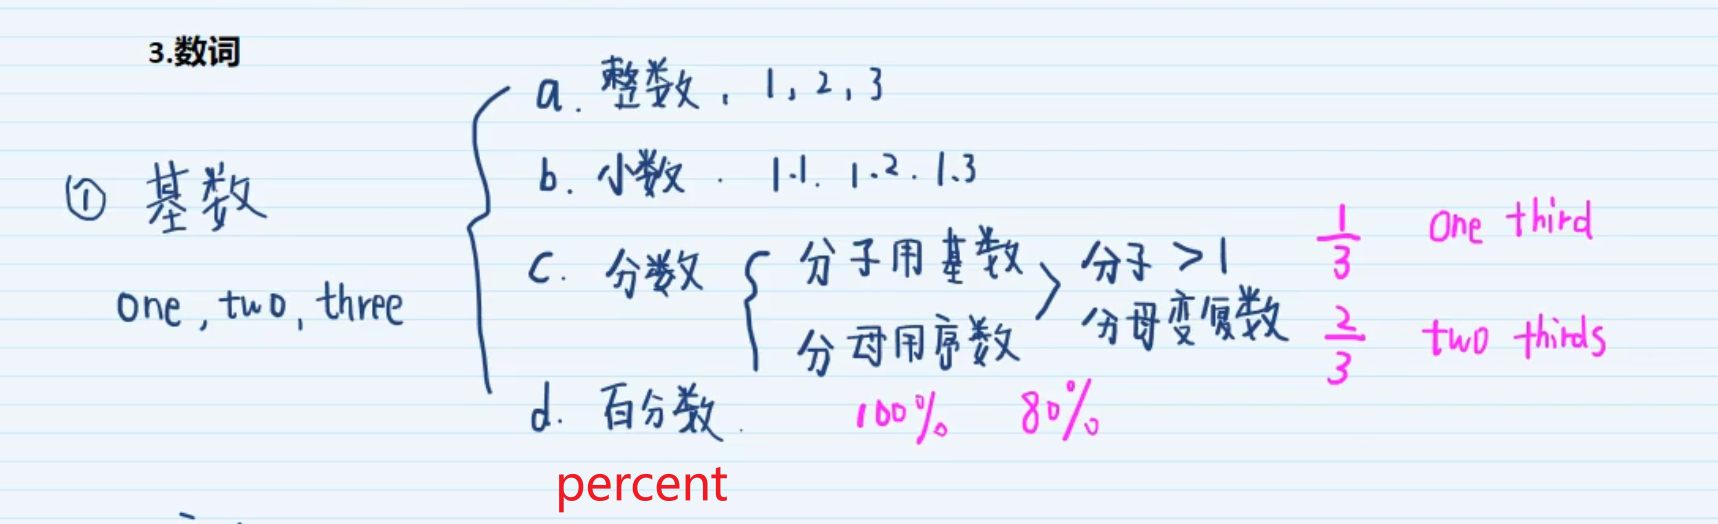 3.数词
① 基数
one, two, three
a. 整数, 1, 2, 3
b. 小数. 1.1. 1.2. 1.3
c. 分数
分子用基数
分母用序数
分子 > 1
分母变复数
1/3 one third
2/3 two thirds
d. 百分数. 100% 80%
percent